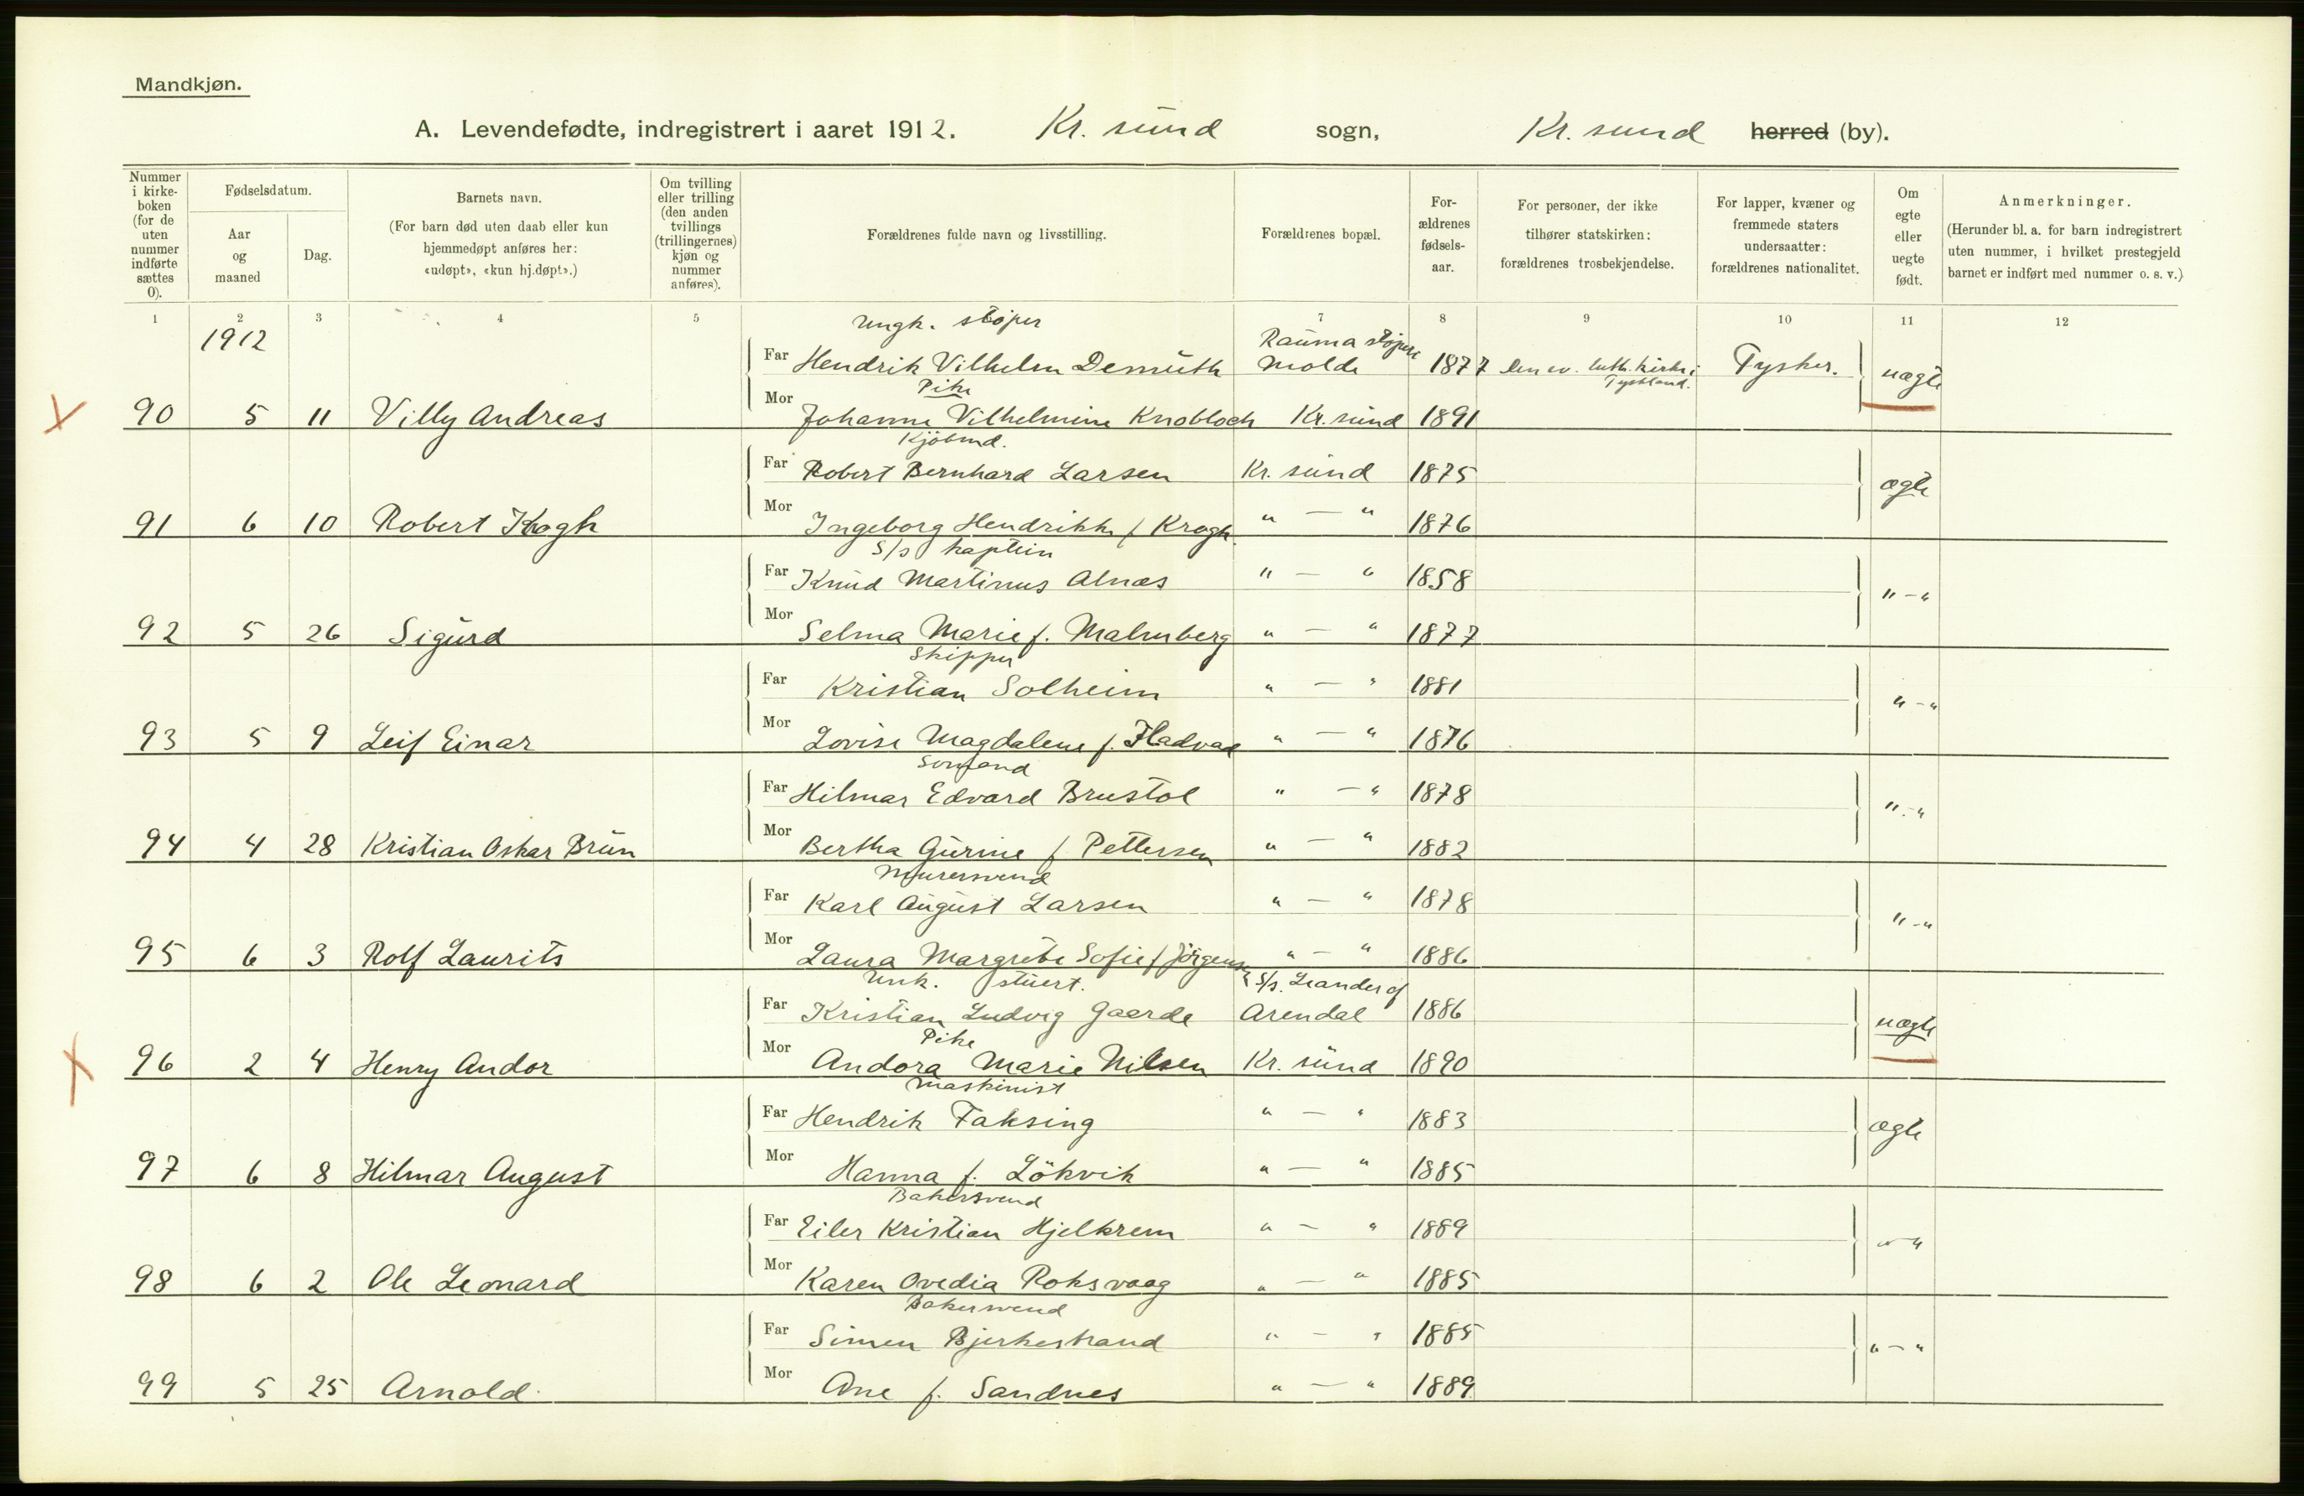 Mandkjøn.
A. Levendefødte, indregistrert i aaret 1912. Kr. sund sogn, Kr. sund herred (by).
Nummer i kirkeboken (for de uten nummer indførte sættes 0).
Fødselsdatum.
Aar og maaned
Dag.
Barnets navn.
(For barn død uten daab eller kun hjemmedøpt anføres her: «udøpt», «kun hj.døpt».)
Om tvilling eller trilling (den anden tvillings (trillingernes) kjøn og nummer anføres).
Forældrenes fulde navn og livsstilling.
Forældrenes bopæl.
Forældrenes fødselsaar.
For personer, der ikke tilhører statskirken: forældrenes trosbekjendelse.
For lapper, kvæner og fremmede staters undersaatter: forældrenes nationalitet.
Om egte eller uegte født.
Anmerkninger.
(Herunder bl. a. for barn indregistrert uten nummer, i hvilket prestegjeld barnet er indført med nummer o. s. v.)
1 2 3 4 5 7 8 9 10 11 12
1912
Ungk. støper Rauma støperi
Far Hendrik Vilhelm Demuth Molde 1877 Den ev. luth. kirke i Tyskland. Tysker. uægte
Pike
90 5 11 Villy Andreas Mor Johanne Vilhelmine Knobloch Kr. sund 1891
Kjøbmd.
Far Robert Bernhard Larsen Kr. sund 1875 ægte
91 6 10 Robert Krogh Mor Ingeborg Hendrikke f. Krogh " — " 1876
S/s kaptein
Far Knud Martinus Alnæs " — " 1858 " — "
92 5 26 Sigurd Mor Selma Marie f. Malmberg " — " 1877
Skipper
Far Kristian Solheim " — " 1881 " — "
93 5 9 Leif Einar Mor Lovise Magdalene f. Fladvad " — " 1876
Sømand
Far Hilmar Edvard Brustol " — " 1878 " - "
94 4 28 Kristian Oskar Brun Mor Bertha Gurine f. Pettersen " — " 1882
Murersvend
Far Karl August Larsen " — " 1878 " — "
95 6 3 Rolf Laurits Mor Laura Margrete Sofie f. Jörgensen " — " 1886
Unk. stuert. S/s. Leander af
Far Kristian Ludvig Gaerde Arendal 1886 uægte
Pike
96 2 4 Henry Andor Mor Andora Marie Nilsen Kr. sund 1890
Maskinist
Far Hendrik Faksing " — " 1883 ægte
97 6 8 Hilmar August Mor Hanna f. Lökvik " — " 1885
Bakersvend
Far Eiler Kristian Hjelkrem " — " 1889 " — "
98 6 2 Ole Leonard Mor Karen Ovedia Roksvaag " — " 1885
Bakersvend
Far Simen Bjerkestrand " — " 1885 " — "
99 5 25 Arnold Mor Ane f. Sandnes " — " 1889